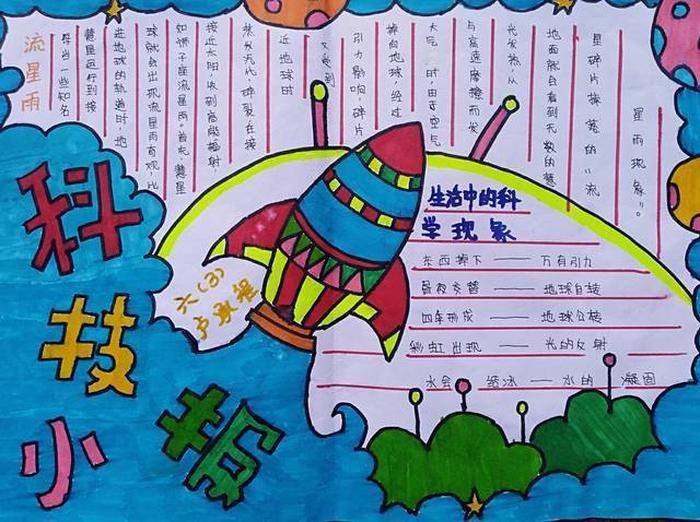 科技小报
流星雨
每当一些知名
彗星运行到接
进地球的轨道时，地
球就会出现流星雨奇观，比
如狮子座流星雨。首先，彗星
接近太阳，收到高能辐射，
蒸发汽化，碎裂，在接
近地球时
又受到
引力影响，碎片
掉向地球，经过
大气时，由于空气
与高速摩擦而发
光发热，从
地面就会看到无数的彗
星碎片掉落的“流
星雨现象”。
六（3）
生活中的科
学现象
东西掉下——万有引力
昼夜交替——地球自转
四季形成——地球公转
彩虹出现——光的反射
水会结冰——水的凝固